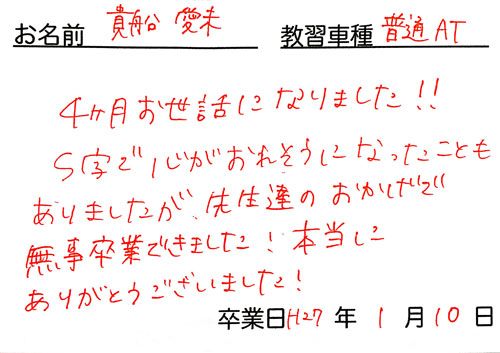 お名前 貴船 愛未 教習車種 普通AT
4ヶ月お世話になりました!!
S字で心がおれそうになったことも
ありましたが、先生達のおかげで
無事卒業できました!本当に
ありがとうございました!
卒業日H27年1月10日